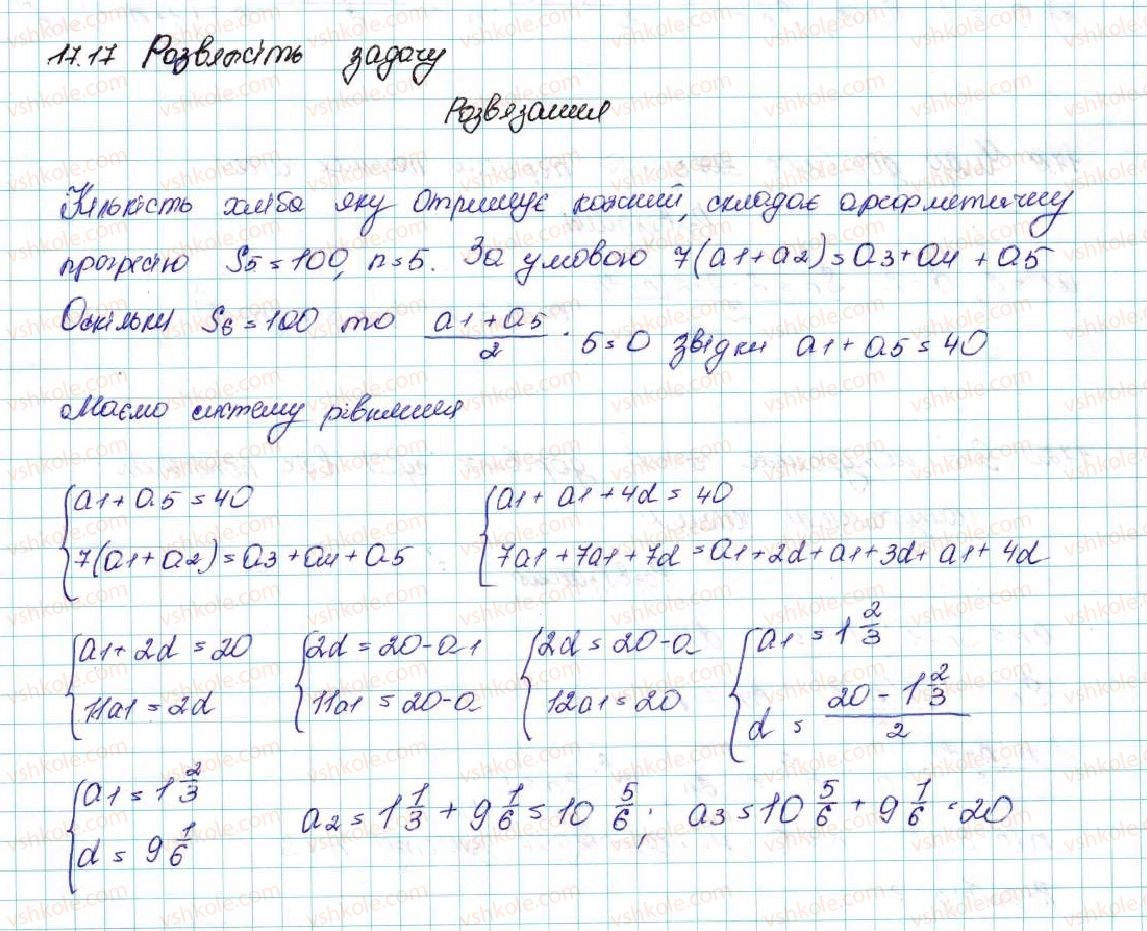 17.17 Розвяжіть задачу
Розвязання
Кількість хліба яку отримує кожний, складає арифметичну
прогресію S5 = 100, n = 5. За умовою 7(a1 + a2) = a3 + a4 + a5
Оскільки S6 = 100 то (a1 + a5)/2 · 5 = 0 звідки a1 + a5 = 40
Маємо систему рівняння
{a1 + a5 = 40 {a1 + a1 + 4d = 40
{7(a1 + a2) = a3 + a4 + a5 {7a1 + 7a1 + 7d = a1 + 2d + a1 + 3d + a1 + 4d
{a1 + 2d = 20 {2d = 20 - a1 {2d = 20 - a {a1 = 1 2/3
{11a1 = 2d {11a1 = 20 - a {12a1 = 20 {d = (20 - 1 2/3)/2
{a1 = 1 2/3
{d = 9 1/6 a2 = 1 1/3 + 9 1/6 = 10 5/6; a3 = 10 5/6 + 9 1/6 = 20
vshkole.com